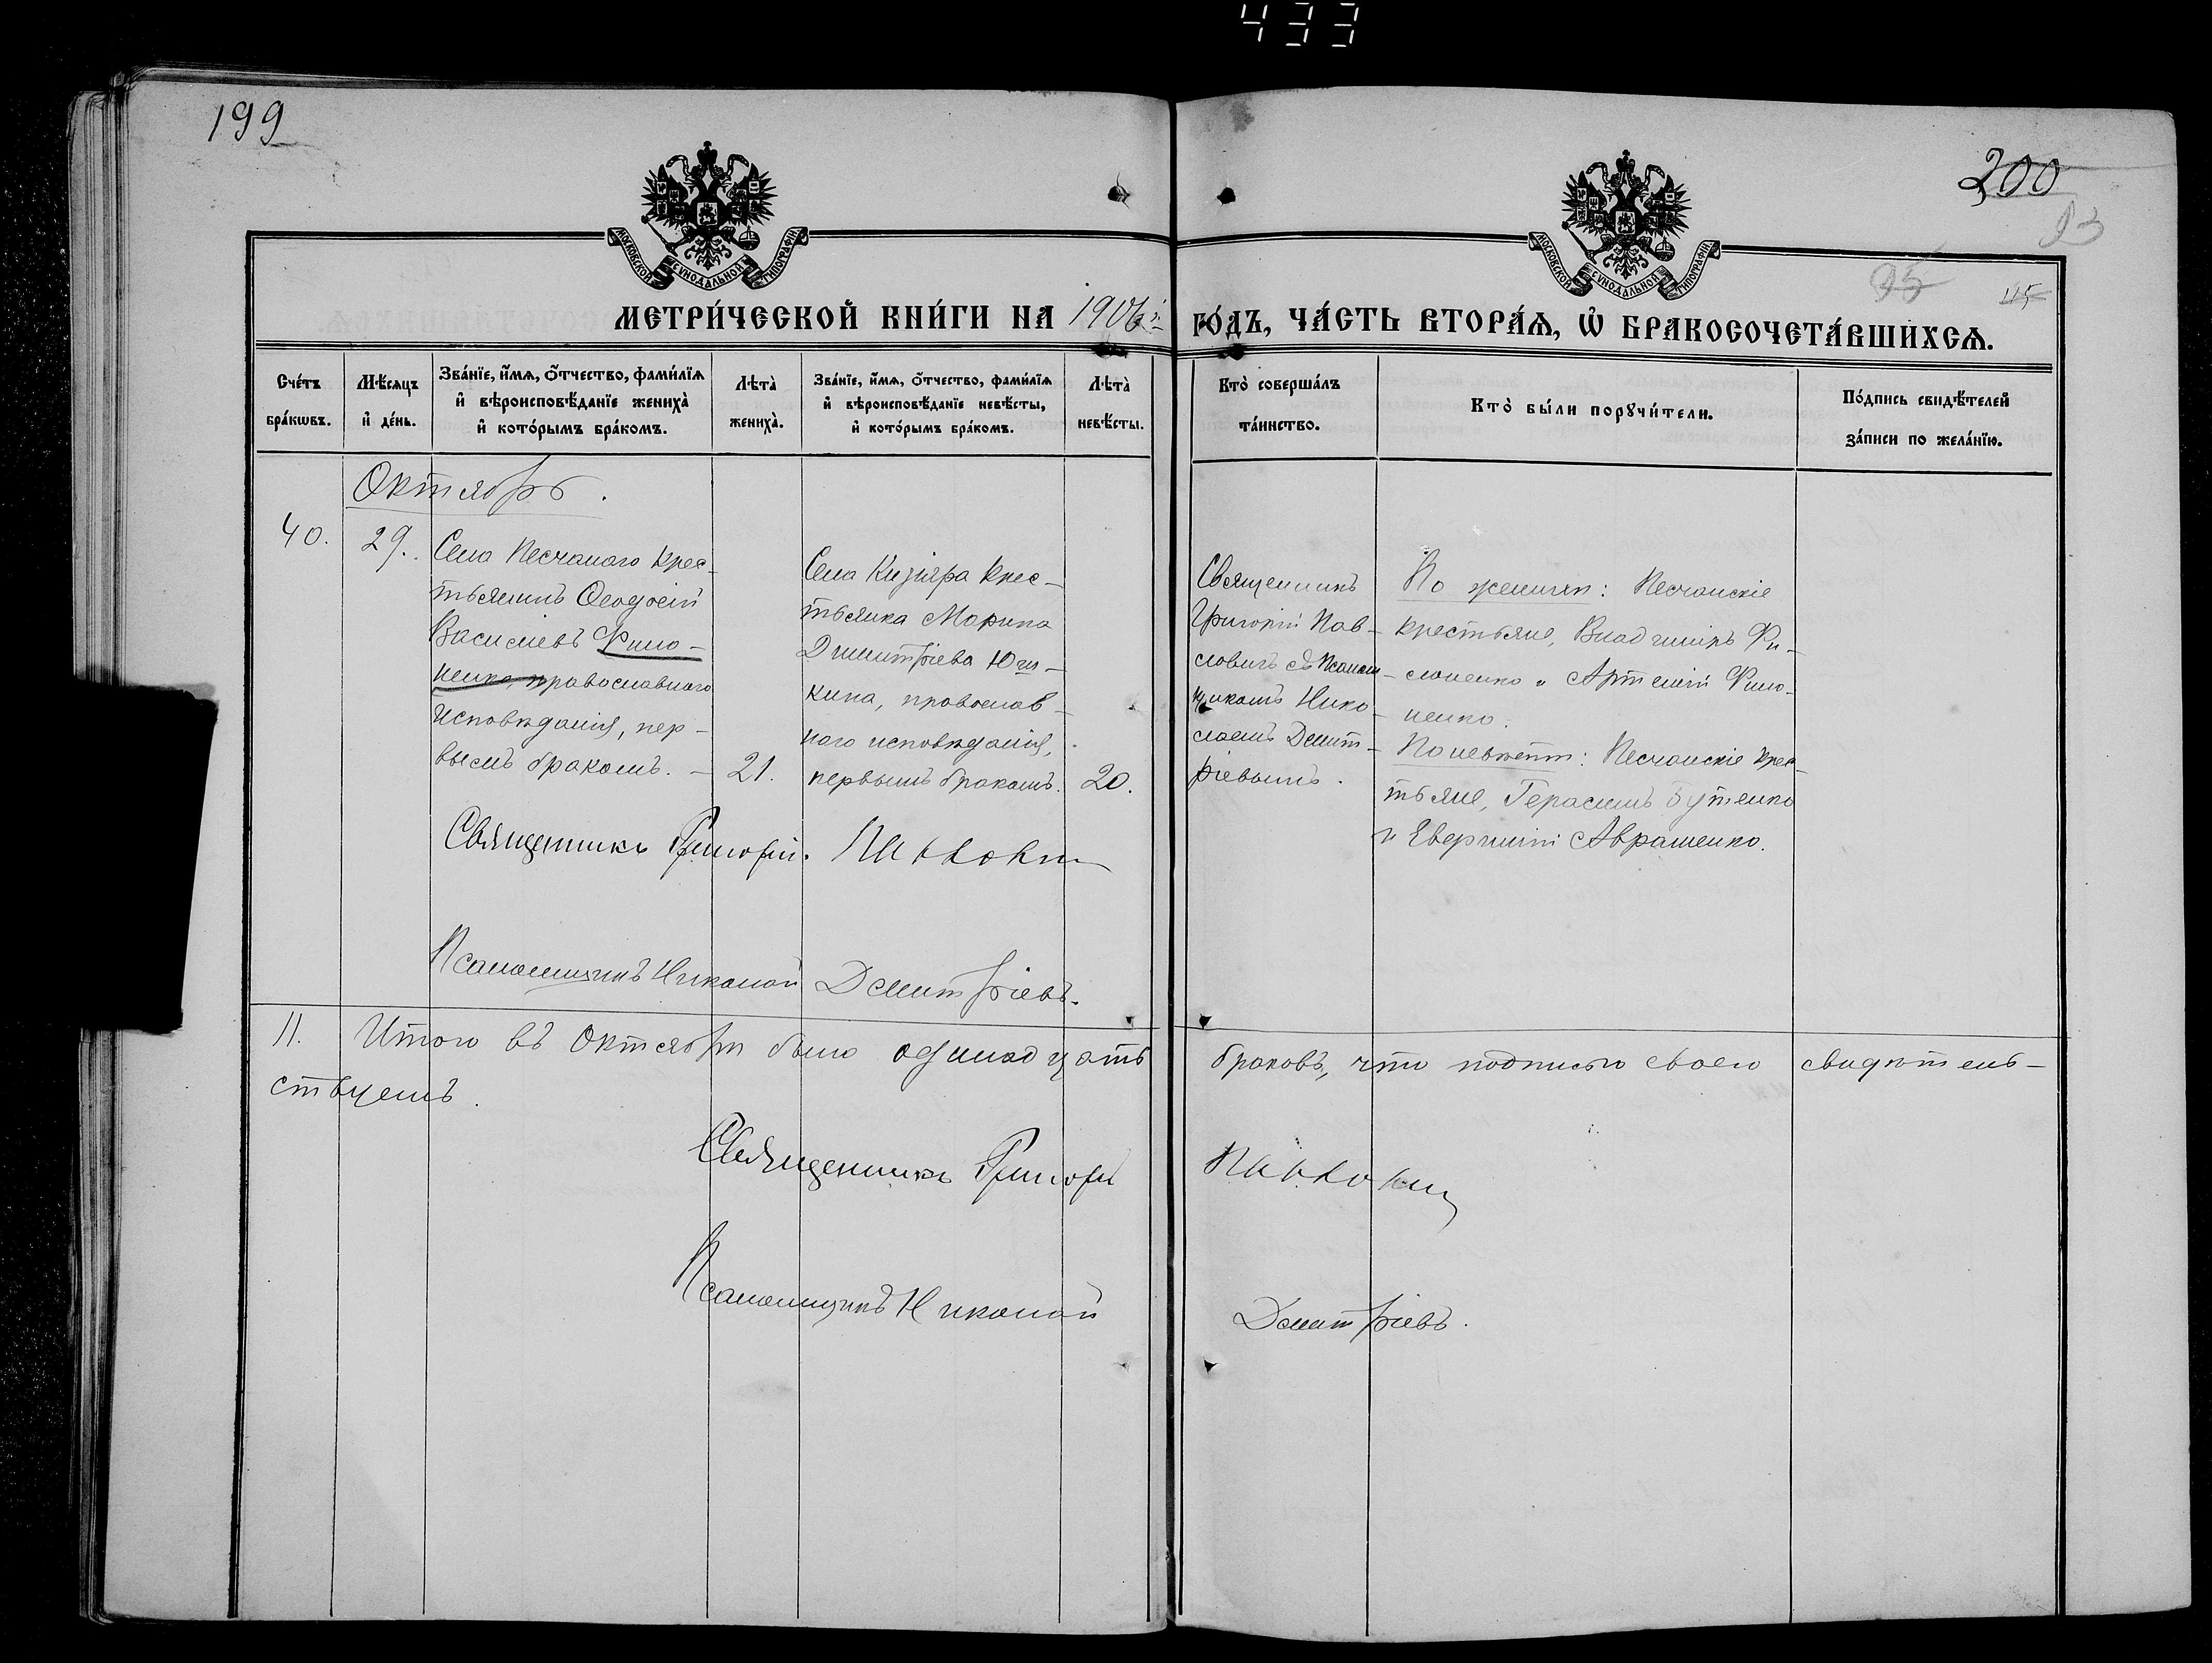 433
199
200
93
95
115
МОСКОВСКОЙ СѴНОДАЛЬНОЙ ТИПОГРАФІИ
МОСКОВСКОЙ СѴНОДАЛЬНОЙ ТИПОГРАФІИ
МЕТРИ́ЧЕСКОЙ КНИ́ГИ НА 1906й
ГО́ДЪ, ЧА́СТЬ ВТОРА́Ѧ, Ѽ БРАКОСОЧЕТА́ВШИХСѦ.
Сче́тъ
бра́кѡвъ.
Мѣ́сяцъ
и҆ де́нь.
Зва́нїе, и҆́мѧ, ѻ҆́тчество, фами́лїѧ
и҆ вѣроисповѣ́данїе жениха̀
и҆ кото́рымъ бра́комъ.
Лѣта̀
жениха̀.
Зва́нїе, и҆́мѧ, ѻ҆́тчество, фами́лїѧ
и҆ вѣроисповѣ́данїе невѣ́сты,
и҆ кото́рымъ бра́комъ.
Лѣта̀
невѣ́сты.
Кто̀ соверша́лъ
та́инство.
Кто̀ бы́ли порꙋчи́тели.
По́дпись свидѣ́телей
за́писи по жела́нїю.
Октябрь.
40.
29.
Села Песчаного крес-
тьянинъ Ѳеодосій
Василіевъ Фило-
ненко, православнаго
исповѣданія, пер-
вымъ бракомъ. –
21.
Села Кизіяра крес-
тьянка Марина
Димитріева Юш-
кина, православ-
ного исповѣданія,
первымъ бракомъ.
20.
Священникъ
Григорій Пав-
ловичъ съ Псалом-
щикомъ Нико-
лаемъ Дмит-
ріевымъ.
По женихѣ: Песчанскіе
крестьяне, Владиміръ Фи-
лоненко и Артемій Фило-
ненко.
По невѣстѣ: Песчанскіе крес-
тьяне, Герасимъ Бутенко
и Авраменко.
Священникъ Григорій.
Псаломщикъ Николай Дмитріевъ.
11. Итого въ Октябрѣ было одинадцать браковъ, что подписью своею свидѣтель-
ствуемъ.
Священникъ Григорій
Псаломщикъ Николай Дмитріевъ.